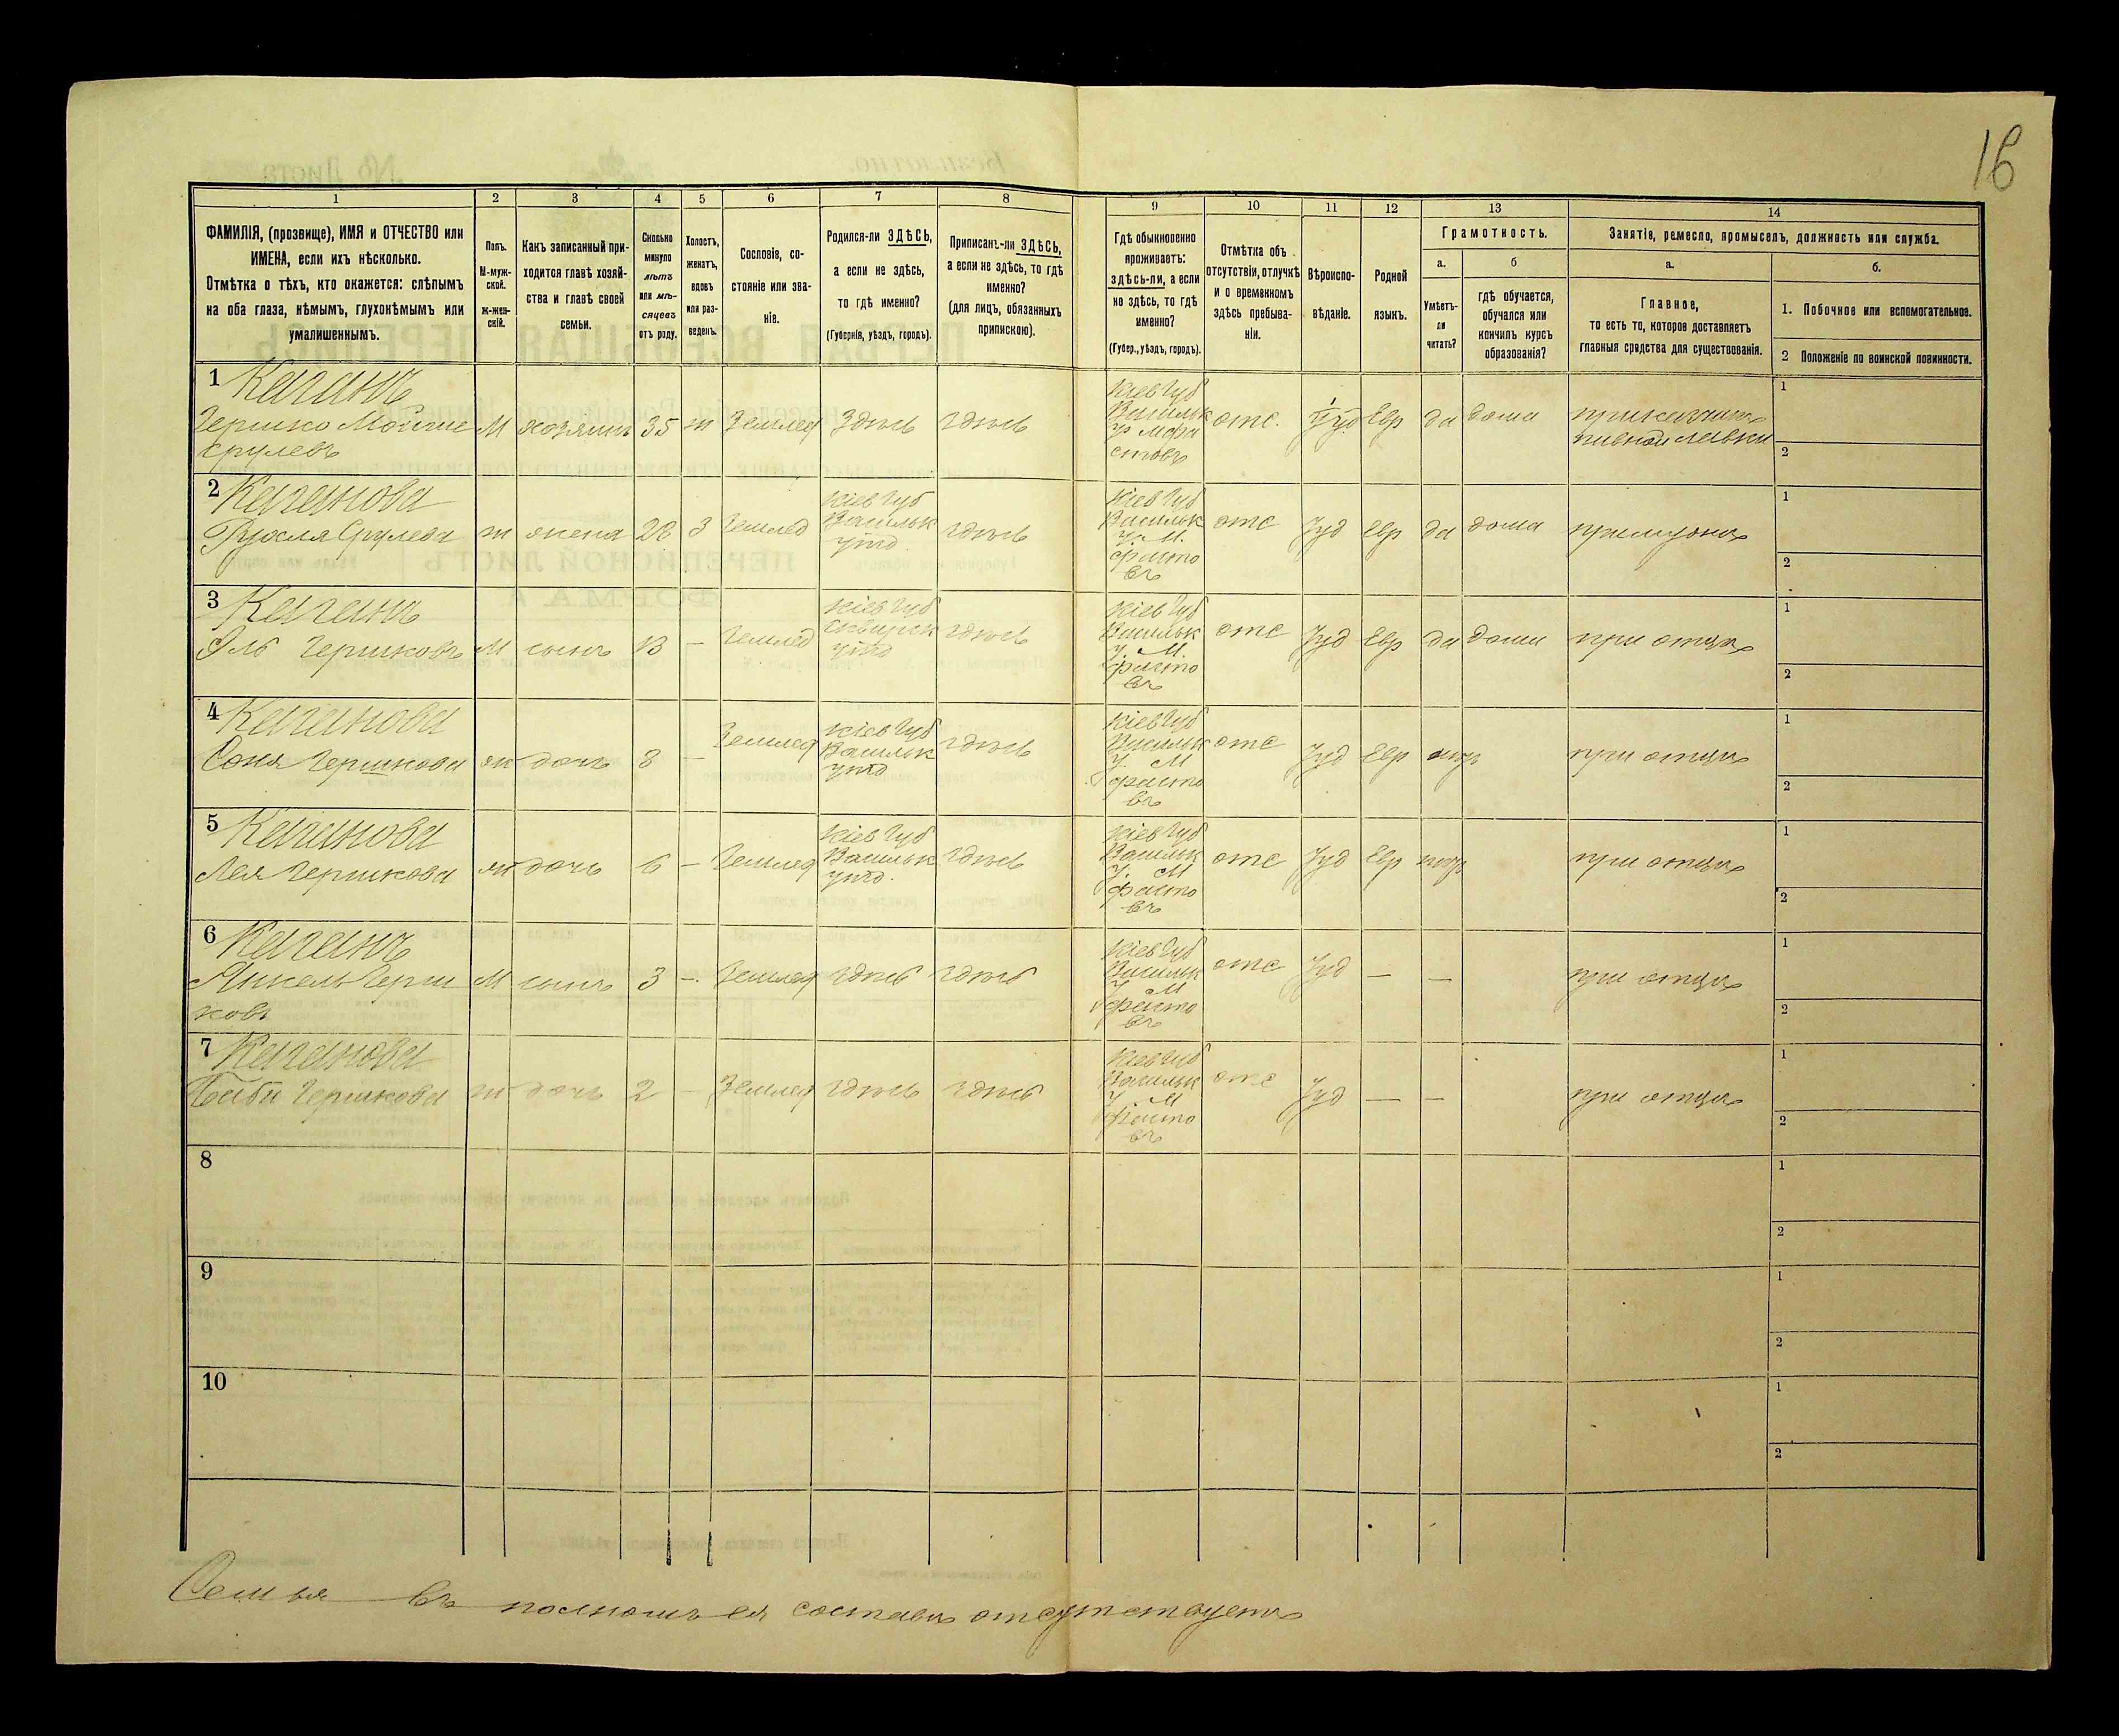 16
1
2
3
4
5
6
7
8
9
10
11
12
13
14
ФАМИЛІЯ, (прозвище), ИМЯ и ОТЧЕСТВО или
ИМЕНА, если ихъ нѣсколько.
Отмѣтка о тѣхъ, кто окажется: слѣпымъ
на оба глаза, нѣмымъ, глухонѣмымъ или
умалишеннымъ.
Полъ.
М-муж-
ской.
ж-жен-
скій.
Какъ записанный при-
ходится главѣ хозяй-
ства и главѣ своей
семьи.
Сколько
минуло
лѣтъ
или мѣ-
сяцевъ
отъ роду.
Холостъ,
женатъ,
вдовъ
или раз-
веденъ.
Сословіе, со-
стояніе или зва-
ніе.
Родился-ли ЗДѢСЬ,
а если не здѣсь,
то гдѣ именно?
(Губернія, уѣздъ, городъ).
Приписанъ-ли ЗДѢСЬ,
а если не здѣсь, то гдѣ
именно?
(для лицъ, обязанныхъ
припискою).
Гдѣ обыкновенно
проживаетъ:
здѣсь-ли, а если
не здѣсь, то гдѣ
именно?
(Губер., уѣздъ, городъ).
Отмѣтка объ
отсутствіи, отлучкѣ
и о временномъ
здѣсь пребыва-
ніи.
Вѣроиспо-
вѣданіе.
Родной
языкъ.
Грамотность.
а.
Умѣетъ-
ли
читать?
б
гдѣ обучается,
обучался или
кончилъ курсъ
образованія?
Занятіе, ремесло, промыселъ, должность или служба.
а.
Главное,
то есть то, которое доставляетъ
главныя средства для существованія.
б.
1. Побочное или вспомогательное.
2 Положеніе по воинской повинности.
1 Каганъ
Гершко Мойше
Срулевъ
М
хозяинъ
35
ж
Землед
Здѣсь
здѣсь
Кіев Губ
Васильк
у. М Фа
стовъ
отс.
Іуд
Евр
да
дома
приказчикъ
пивной лавки
1
2
2 Каганова
Рухля Срулева
ж
жена
28
З
Землед
Кіев Губ
Васильк
уѣзд
здѣсь
Кіев Губ
Васильк
у. М.
Фасто
въ
отс
Іуд
Евр
да
дома
при мужѣ
1
2
3 Каганъ
Гершковъ
М
сынъ
13
-
Землед
Кіев Губ
Сквирск
уѣзд
здѣсь
Кіев Губ
Васильк
у. М.
Фасто
въ
отс
Іуд
Евр
да
дома
при отцѣ
1
2
4 Каганова
Соня Гершкова
ж
дочь
8
-
Землед
Кіев Губ
Васильк
уѣзд
здѣсь
Кіев Губ
Васильк
у. М
Фасто
въ
отс
Іуд
Евр
нѣтъ
при отцѣ
1
2
5 Каганова
Лея Гершкова
ж
дочь
6
-
Землед
Кіев Губ
Васильк
уѣзд.
здѣсь
Кіев Губ
Васильк
у. М
Фасто
въ
отс
Іуд
Евр
нѣтъ
при отцѣ
1
2
6 Каганъ
Янкель Герш
ковъ
М
сынъ
3
-
Землед
здѣсь
здѣсь
Кіев Губ
Васильк
у. М
Фасто
въ
отс
Іуд
—
—
при отцѣ
1
2
7 Каганова
Гершкова
ж
дочь
2
-
Землед
здѣсь
здѣсь
Кіев Губ
Васильк
у. М
Фасто
въ
отс
Іуд
—
—
при отцѣ
1
2
8
1
2
9
1
2
10
1
2
Семья въ полномъ ея составѣ отсутствуетъ